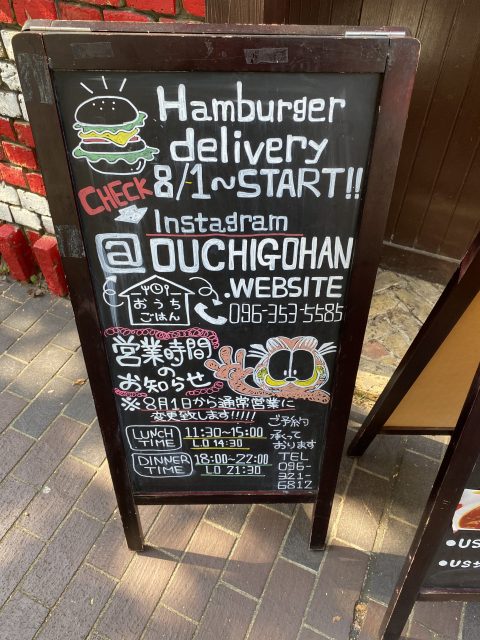 Hamburger
delivery
8/1~START!!
CHECK
Instagram
@OUCHIGOHAN
.WEBSITE
おうち
ごはん
096-353-5585
営業時間
の
お知らせ
※8月1日から通常営業に
変更致します!!!!!
LUNCH TIME 11:30~15:00
L.O 14:30
DINNER TIME 18:00~22:00
L.O 21:30
ご予約
承って
おります
TEL
096-
321-
6812
●US
●US